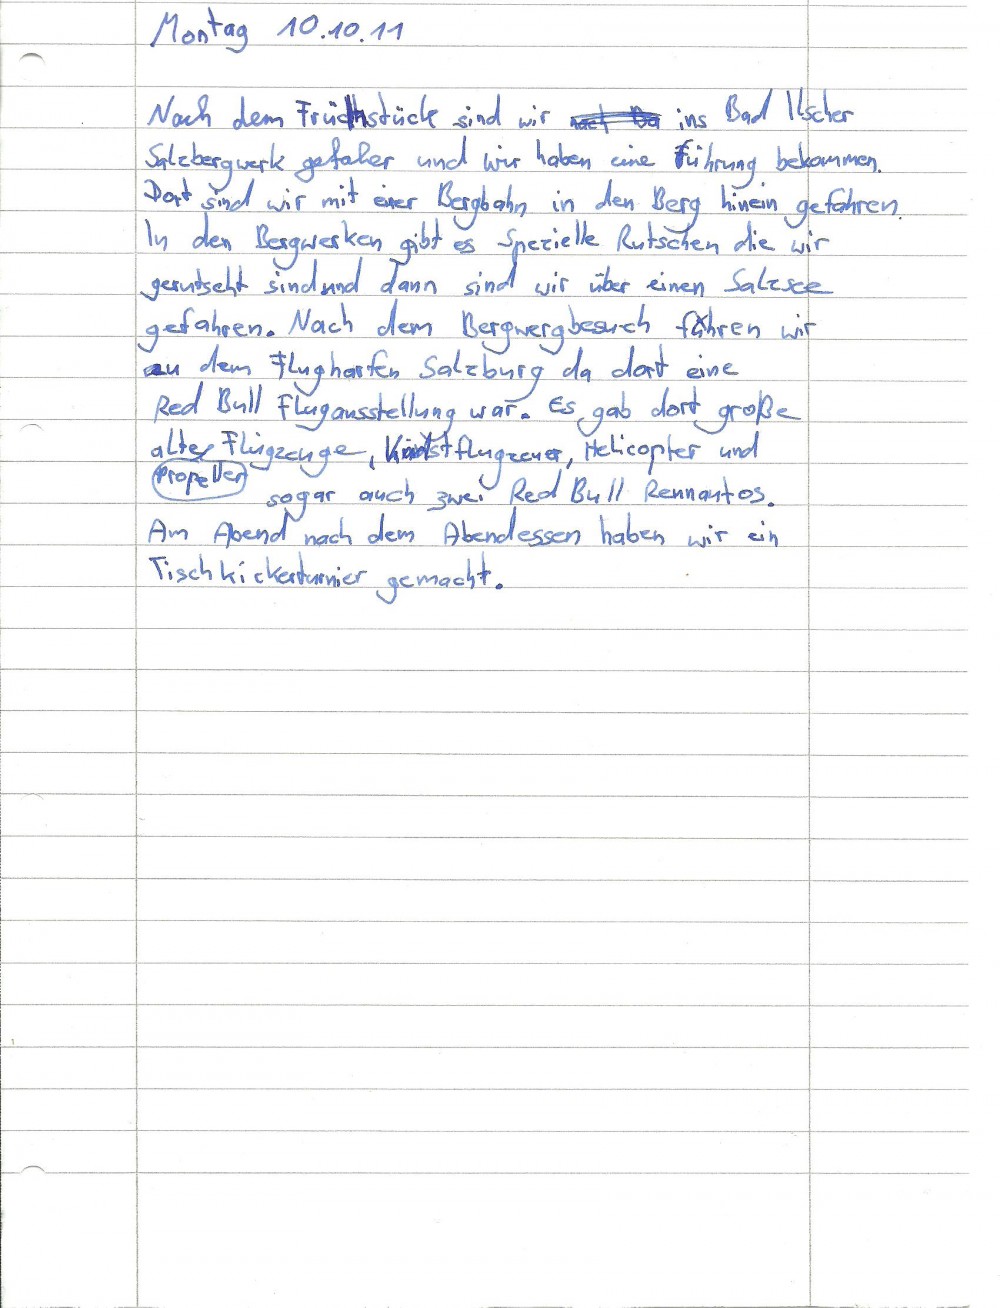 Montag 10.10.11
Nach dem Früchstück sind wir ins Bad Ilscher
Salzbergwerk gefaher und wir haben eine Führung bekommen.
Dort sind wir mit einer Bergbahn in den Berg hinein gefahren.
In den Bergwerken gibt es Spezielle Rutschen die wir
gerutscht sind und dann sind wir über einen Salzsee
gefahren. Nach dem Bergwergbesuch fahren wir
zu dem Flugharfen Salzburg da dort eine
Red Bull Flugausstellung war. Es gab dort große
alte Flugzeuge, Kunstflugzeuer, Helicopter und
Propeller
sogar auch zwei Red Bull Rennautos.
Am Abend nach dem Abendessen haben wir ein
Tischkickerturnier gemacht.